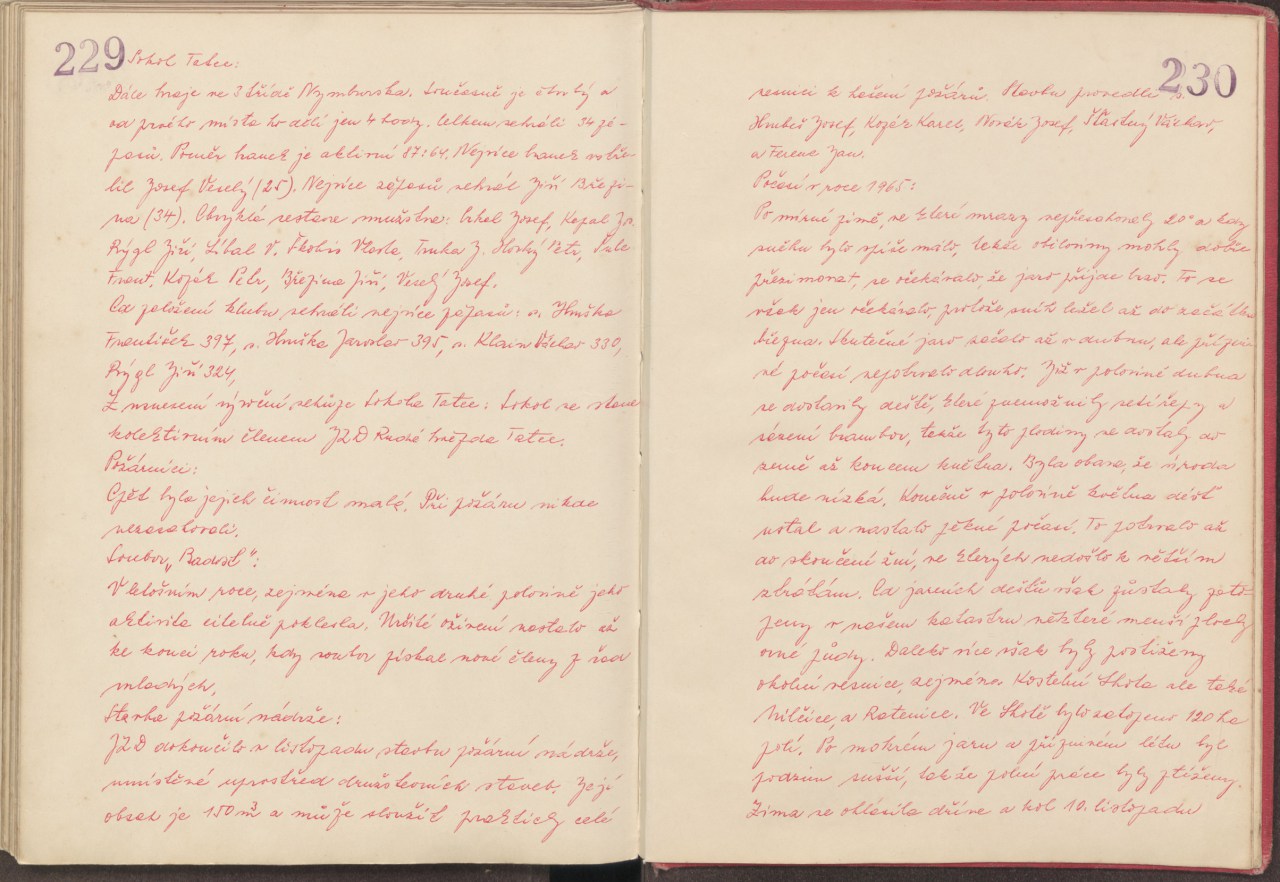 229
Sokol Tatce:
Dále hraje ve 3 třídě Nymburska. Současně je čtvrtý a
od prvého místa ho dělí jen 4 body. Celkem sehráli 34 zá-
pasů. Poměr branek je aktivní 87:64. Nejvíce branek vstře-
lil Josef Veselý (25). Nejvíce zápasů sehrál Jiří Březi-
na (34). Obvyklá sestava mužstva: Josef, Kopal
Rýgl Jiří, Líbal V. Škobis Vlasta, Truka J. Horký Petr,
Frant. Kozák Petr, Březina Jiří, Veselý Josef.
Od založení klubu sehráli nejvíce zápasů: s. Hruška
František 397, s. Hruška Jaroslav 395, s. Klain Václav 330,
Rýgl Jiří 324,
Z usnesení výroční schůze Sokola Tatce: Sokol se stane
kolektivním členem JZD Rudá hvězda Tatce.
Požárníci:
Opět byla jejich činnost malá. Při požáru nikde
nezasahovali.
Soubor „Radost":
V letošním roce, zejména v jeho druhé polovině jeho
aktivita citelně poklesla. Určité oživení nastalo až
ke konci roku, kdy soubor získal nové členy z řad
mladých.
Stavba požární nádrže:
JZD dokončilo v listopadu stavbu požární nádrže,
umístěné uprostřed družstevních staveb. Její
obsah je 150 m³ a může sloužit prakticky celé
230
vesnici k hašení požárů. Stavbu provedli s.
Hrubeš Josef, Kozák Karel, Novák Josef, Šťastný Václav,
a Ferenc Jan.
Počasí v roce 1965:
Po mírné zimě, ve které mrazy nepřesahovaly 20° a kdy
sněhu bylo spíše málo, takže obiloviny mohly dobře
přezimovat, se očekávalo, že jaro přijde brzo. To se
však jen očekávalo, protože sníh ležel až do začátku
března. Skutečné jaro začalo až v dubnu, ale příznivé
počasí nepotrvalo dlouho. Již v polovině dubna
se dostavily deště, které znemožnily setí řepy a
sázení brambor, takže tyto plodiny se dostaly do
země až koncem května. Byla obava, že úroda
bude nízká. Konečně v polovině května déšť
ustal a nastalo pěkné počasí. To potrvalo až
do skončení žní, ve kterých nedošlo k větším
ztrátám. Od jarních dešťů však zůstaly zato-
peny v našem katastru některé menší plochy
orné půdy. Daleko více však byly postiženy
okolní vesnice, zejména Kostelní Lhota ale také
Milčice, a Ratenice. Ve Lhotě bylo zatopeno 120 ha
polí. Po mokrém jaru a příznivém létu byl
podzim sušší, takže polní práce byly ztíženy.
Zima se ohlásila dříve a kol 10. listopadu